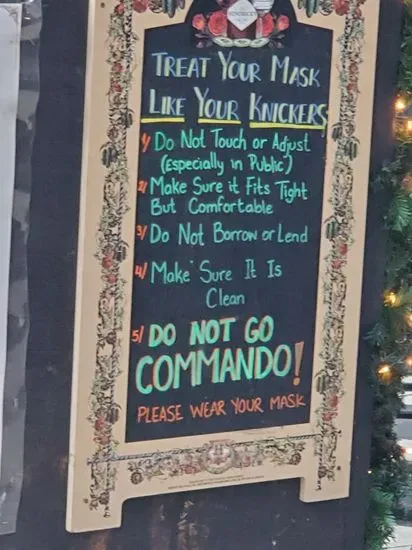 HENDRICK'S
TREAT YOUR MASK
LIKE YOUR KNICKERS
1/ Do Not Touch or Adjust
(Especially in Public)
2/ Make Sure it Fits Tight
But Comfortable
3/ Do Not Borrow or Lend
4/ Make Sure It Is
Clean
5/ DO NOT GO
COMMANDO!
PLEASE WEAR YOUR MASK